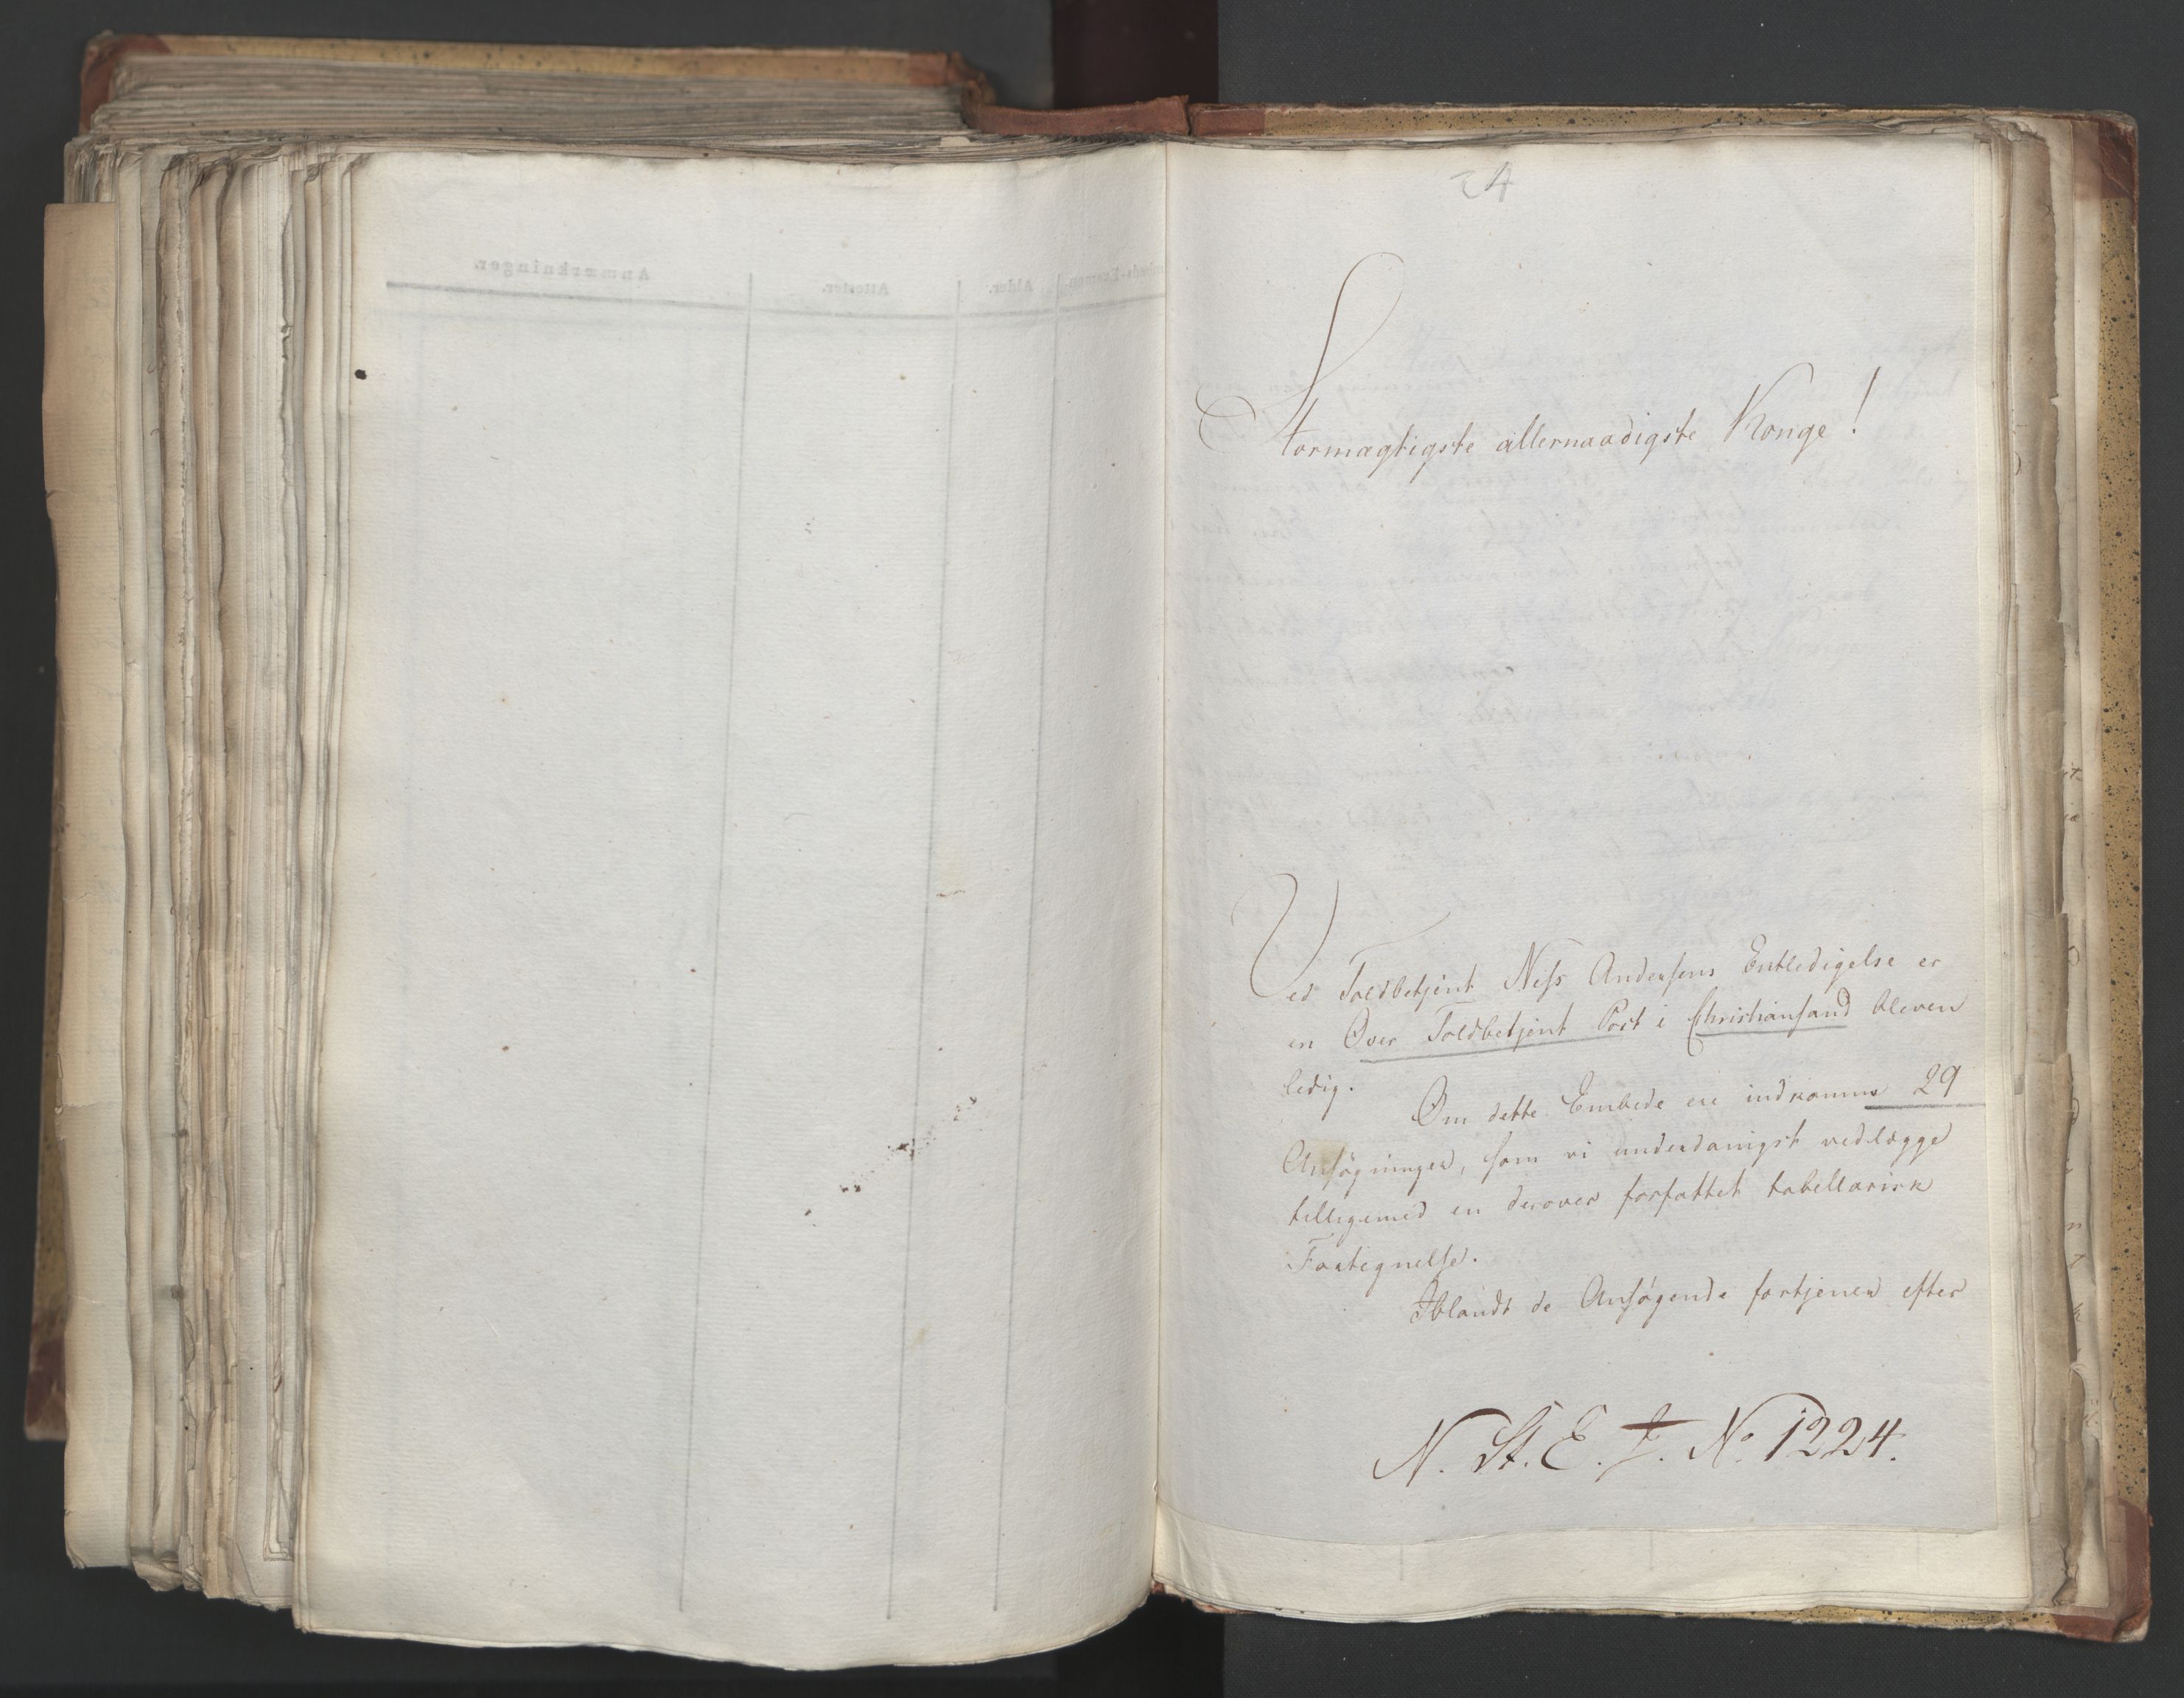 24
Stormægtigste allernaadigste Konge!
Ved Toldbetjent Niss Andersens Entledigelse er
en Over Toldbetjent Post i Christiansand bleven
ledig.
Om dette Embede ere indkomne 29
Ansøgninger, som vi underdanigst vedlægge
tilligemed en derover forfattet tabellarisk
Fortegnelse.
Iblandt de Ansøgende fortjener efter
N. St. E. J. No 1224.